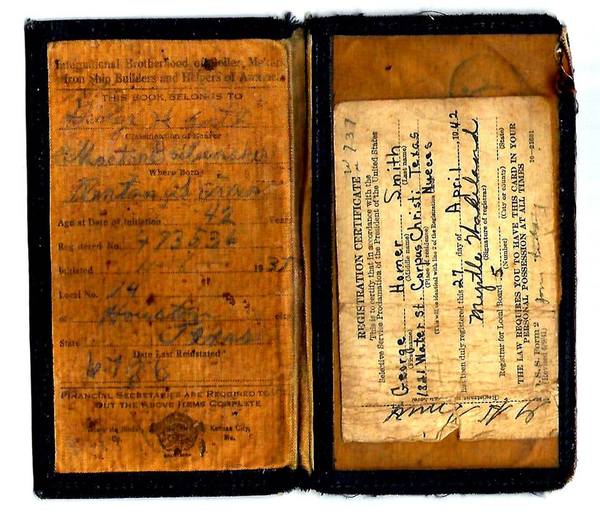 International Brotherhood of Boiler Makers
Iron Ship Builders and Helpers of America
THIS BOOK BELONGS TO
George H. Smith
Classification of Bearer
Where Born
Texas
Age at Date of Initiation 42 Years
Registered No.
Initiated 19 37
Local No. 74
of Houston
State Texas
Date Last Reinstated
FINANCIAL SECRETARIES ARE REQUIRED TO
FILL OUT THE ABOVE ITEMS COMPLETE
Kansas City,
REGISTRATION CERTIFICATE
This is to certify that in accordance with the
Selective Service Proclamation of the President of the United States
George Homer Smith
(First name) (Middle name) (Last name)
1321 Water St. Corpus Christi Texas
(Place of residence) Nueces
(This will be identical with line 2 of the Registration
has been duly registered this 27 day of April, 1942
Myrtle
(Signature of registrar)
Registrar for Local Board 5
(Number) (City or county) (State)
THE LAW REQUIRES YOU TO HAVE THIS CARD IN YOUR
PERSONAL POSSESSION AT ALL TIMES
D. S. S. Form 2 16—21631